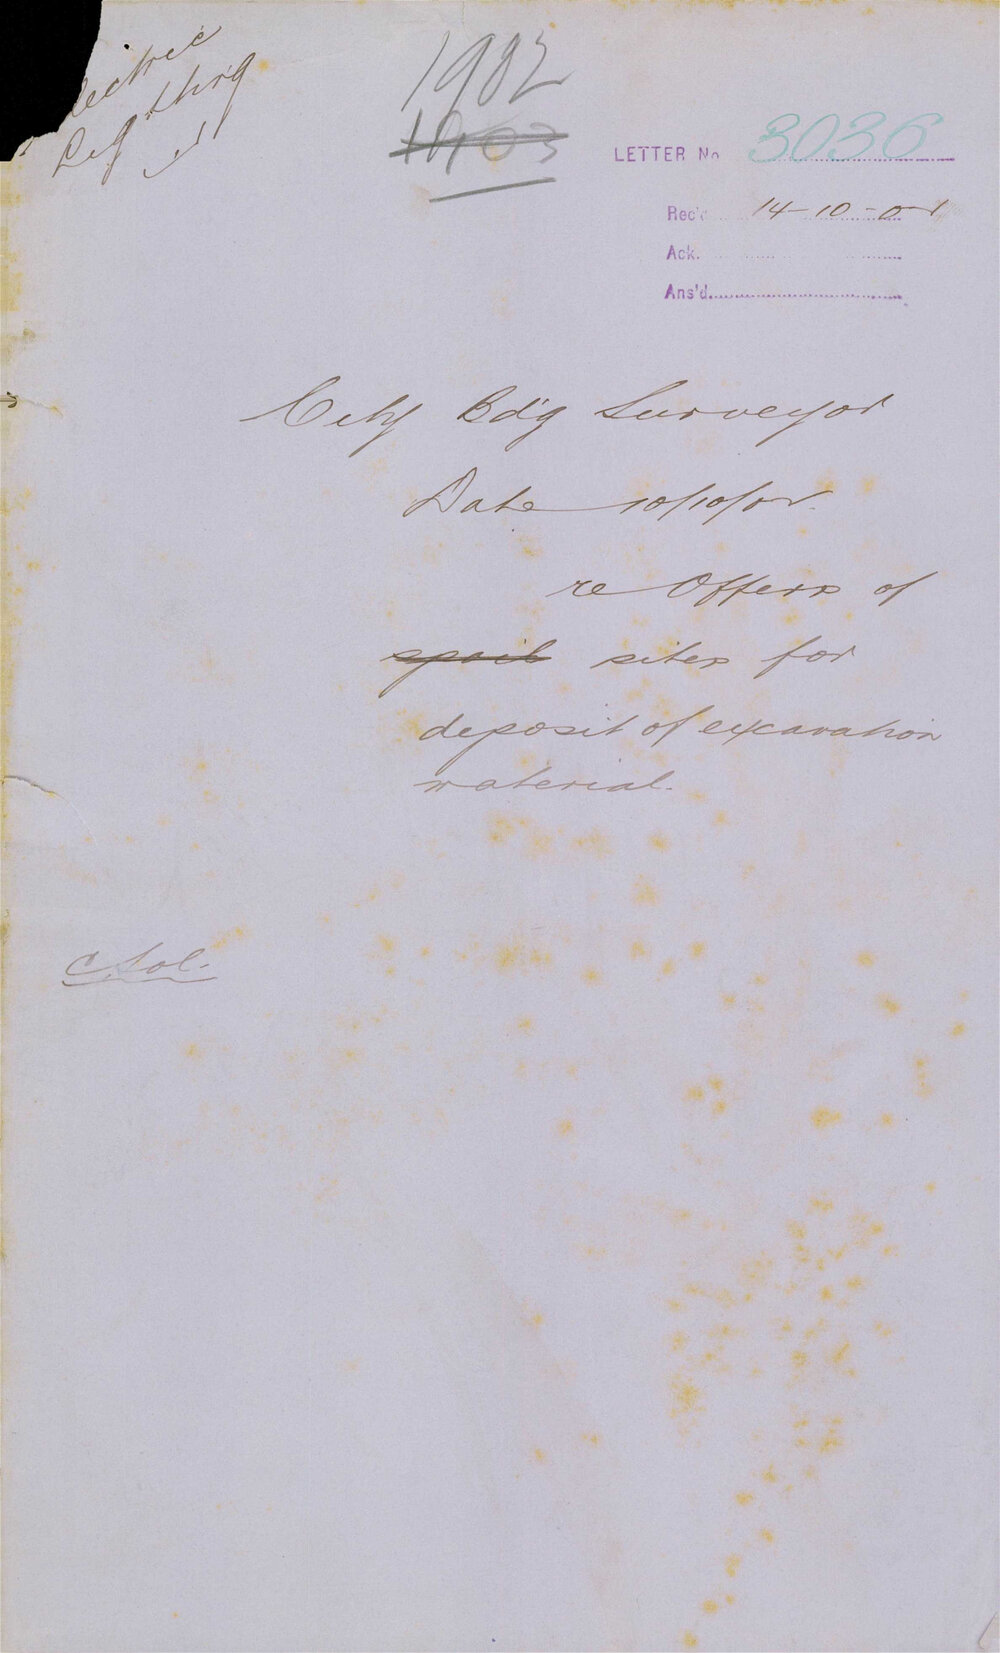 Electric
Lighting
1902
1903
LETTER No 3036
Rec'd 14-10-02
Ack.
Ans'd.
City Bdg Surveyor
Date 10/10/02.
re Offers of
spoil sites for
deposit of excavation
material.
C Sol.